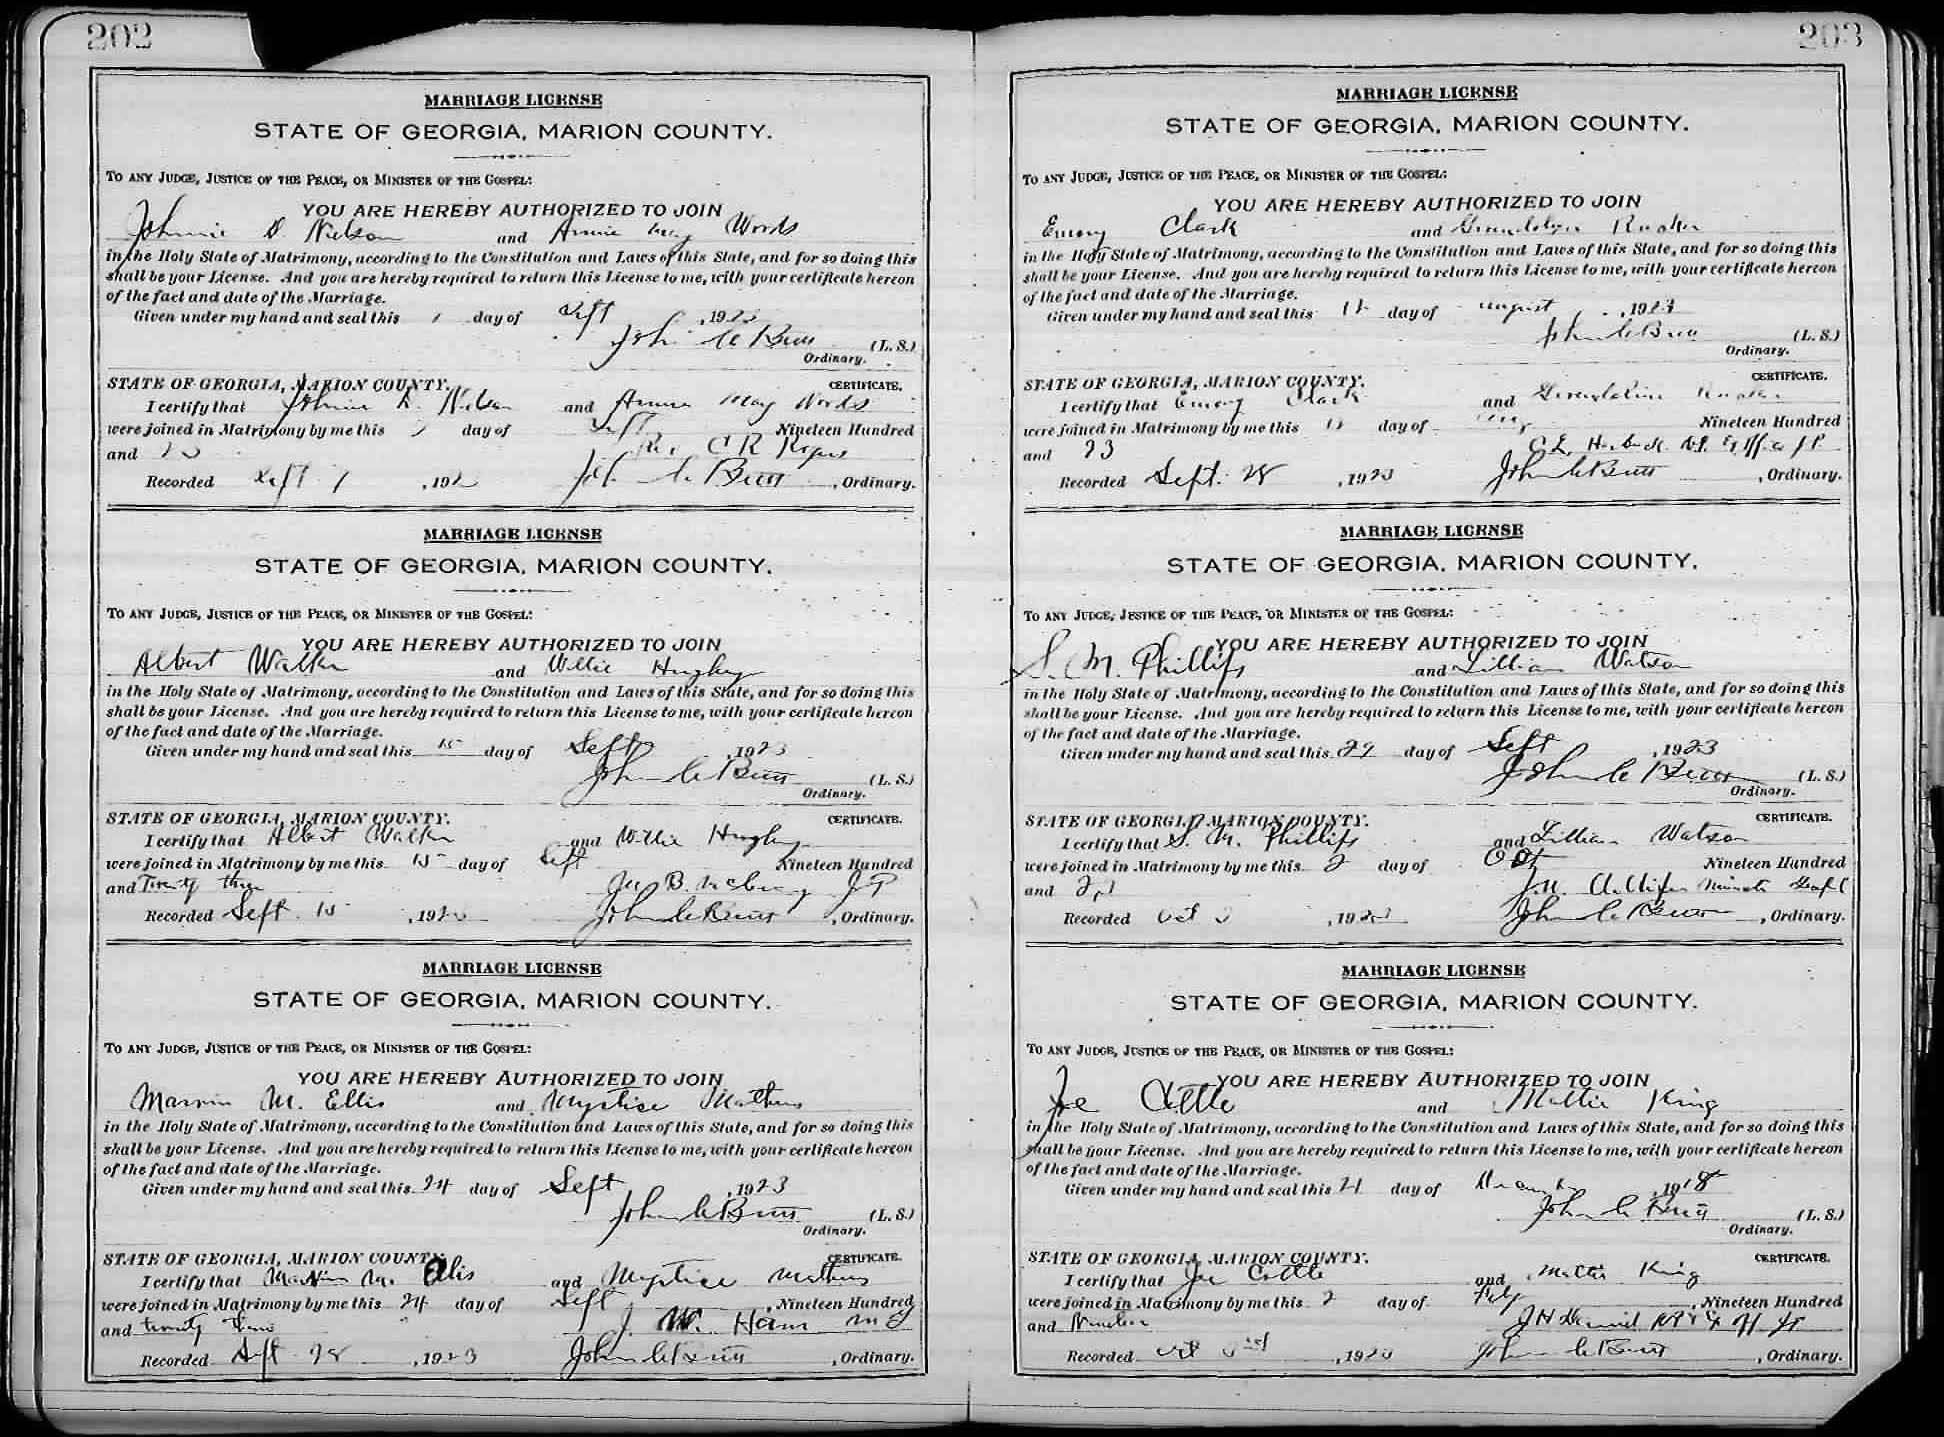 202
MARRIAGE LICENSE
STATE OF GEORGIA, MARION COUNTY.
TO ANY JUDGE, JUSTICE OF THE PEACE, OR MINISTER OF THE GOSPEL:
YOU ARE HEREBY AUTHORIZED TO JOIN
Johnnie D. Nielson and Annie May Words
in the Holy State of Matrimony, according to the Constitution and Laws of this State, and for so doing this
shall be your License. And you are hereby required to return this License to me, with your certificate hereon
of the fact and date of the Marriage.
Given under my hand and seal this day of Sept, 1923
John C Butt (L. S.)
Ordinary.
STATE OF GEORGIA, MARION COUNTY. CERTIFICATE.
I certify that Johnnie D. Nelson and Annie May Words
were joined in Matrimony by me this day of Sept Nineteen Hundred
and 23 Rev C R Rogers
Recorded Sept 1, 192 John C Butt, Ordinary.
MARRIAGE LICENSE
STATE OF GEORGIA, MARION COUNTY.
TO ANY JUDGE, JUSTICE OF THE PEACE, OR MINISTER OF THE GOSPEL:
YOU ARE HEREBY AUTHORIZED TO JOIN
Albert Walker and Willie Hughey
in the Holy State of Matrimony, according to the Constitution and Laws of this State, and for so doing this
shall be your License. And you are hereby required to return this License to me, with your certificate hereon
of the fact and date of the Marriage.
Given under my hand and seal this 15 day of Sept, 1923
John C Butt (L. S.)
Ordinary.
STATE OF GEORGIA, MARION COUNTY. CERTIFICATE.
I certify that Albert Walker and Willie Hughey
were joined in Matrimony by me this 15 day of Sept Nineteen Hundred
and Twenty three B. JP
Recorded Sept. 15, 1923 John C Butt, Ordinary.
MARRIAGE LICENSE
STATE OF GEORGIA, MARION COUNTY.
TO ANY JUDGE, JUSTICE OF THE PEACE, OR MINISTER OF THE GOSPEL:
YOU ARE HEREBY AUTHORIZED TO JOIN
Marvin M. Ellis and Mystice Mathews
in the Holy State of Matrimony, according to the Constitution and Laws of this State, and for so doing this
shall be your License. And you are hereby required to return this License to me, with your certificate hereon
of the fact and date of the Marriage.
Given under my hand and seal this 24 day of Sept, 1923
John C Butt (L. S.)
Ordinary.
STATE OF GEORGIA, MARION COUNTY. CERTIFICATE.
I certify that Marvin M. Ellis and Mystice Mathews
were joined in Matrimony by me this 24 day of Sept, Nineteen Hundred
and twenty three J. W. Ham M G
Recorded Sept. 28, 1923 John C Butt, Ordinary.
203
MARRIAGE LICENSE
STATE OF GEORGIA, MARION COUNTY.
TO ANY JUDGE, JUSTICE OF THE PEACE, OR MINISTER OF THE GOSPEL:
YOU ARE HEREBY AUTHORIZED TO JOIN
Emory Clark and Rucker
in the Holy State of Matrimony, according to the Constitution and Laws of this State, and for so doing this
shall be your License. And you are hereby required to return this License to me, with your certificate hereon
of the fact and date of the Marriage.
Given under my hand and seal this day of August, 1923
John C Butt (L. S.)
Ordinary.
STATE OF GEORGIA, MARION COUNTY. CERTIFICATE.
I certify that Emory Clark and Rucker
were joined in Matrimony by me this day of Aug Nineteen Hundred
and 23 C. E. J P
Recorded Sept. 28, 1923 John C Butt, Ordinary.
MARRIAGE LICENSE
STATE OF GEORGIA, MARION COUNTY.
TO ANY JUDGE, JUSTICE OF THE PEACE, OR MINISTER OF THE GOSPEL:
YOU ARE HEREBY AUTHORIZED TO JOIN
S. M. Phillips and Lillian Watson
in the Holy State of Matrimony, according to the Constitution and Laws of this State, and for so doing this
shall be your License. And you are hereby required to return this License to me, with your certificate hereon
of the fact and date of the Marriage.
Given under my hand and seal this 29 day of Sept, 1923
John C Butt (L. S.)
Ordinary.
STATE OF GEORGIA, MARION COUNTY. CERTIFICATE.
I certify that S. M. Phillips and Lillian Watson
were joined in Matrimony by me this 2 day of Oct Nineteen Hundred
and 23
Recorded Oct 3, 1923 John C Butt, Ordinary.
MARRIAGE LICENSE
STATE OF GEORGIA, MARION COUNTY.
TO ANY JUDGE, JUSTICE OF THE PEACE, OR MINISTER OF THE GOSPEL:
YOU ARE HEREBY AUTHORIZED TO JOIN
Joe Cottle and Mattie King
in the Holy State of Matrimony, according to the Constitution and Laws of this State, and for so doing this
shall be your License. And you are hereby required to return this License to me, with your certificate hereon
of the fact and date of the Marriage.
Given under my hand and seal this 21 day of, 1918
John C Butt (L. S.)
Ordinary.
STATE OF GEORGIA, MARION COUNTY. CERTIFICATE.
I certify that Joe Cottle and Mattie King
were joined in Matrimony by me this 2 day of Feby, Nineteen Hundred
and Nineteen J H Daniel
Recorded Oct 3rd, 1923 John C Butt, Ordinary.